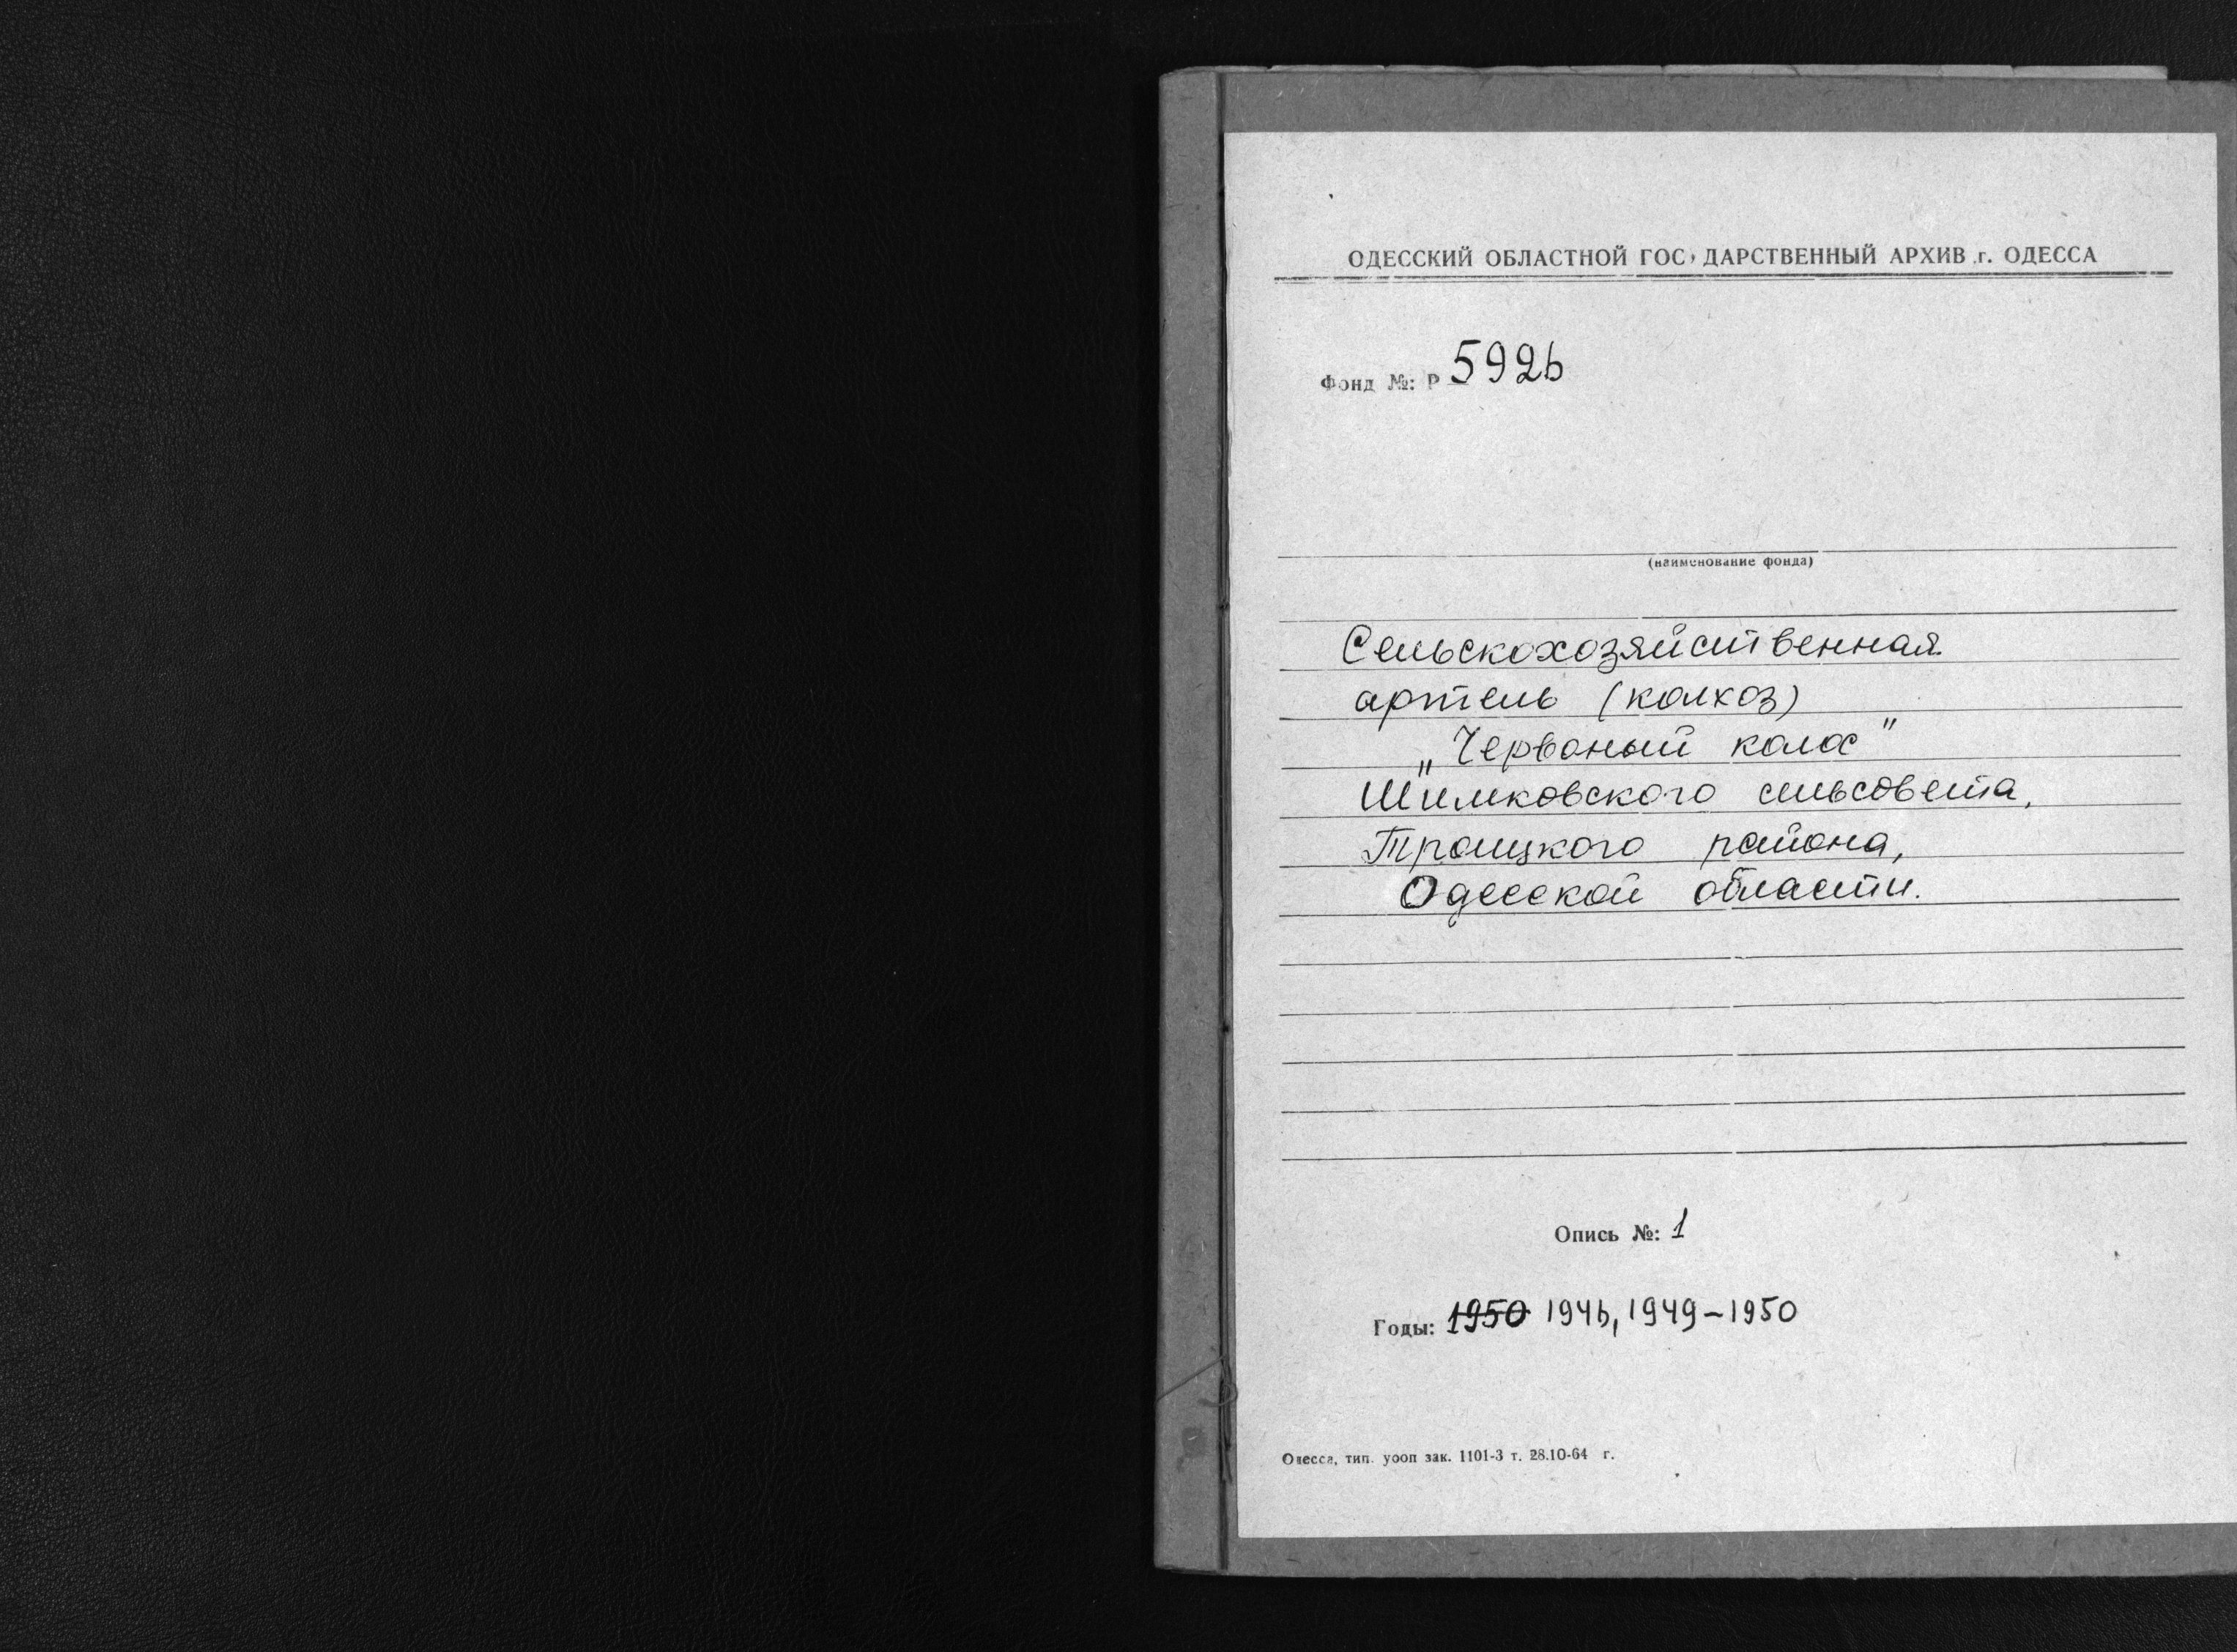 ОДЕССКИЙ ОБЛАСТНОЙ ГОС ДАРСТВЕННЫЙ АРХИВ г. ОДЕССА
Фонд №: Р 5926
(наименование фонда)
Сельскохозяйственная
артель (колхоз)
„Червоный колос"
Шимковского сельсовета,
Троицкого района,
Одесской области.
Опись №: 1
Годы: 1950 1946, 1949-1950
Одесса, тип. уооп зак. 1101-3 т. 28.10-64 г.